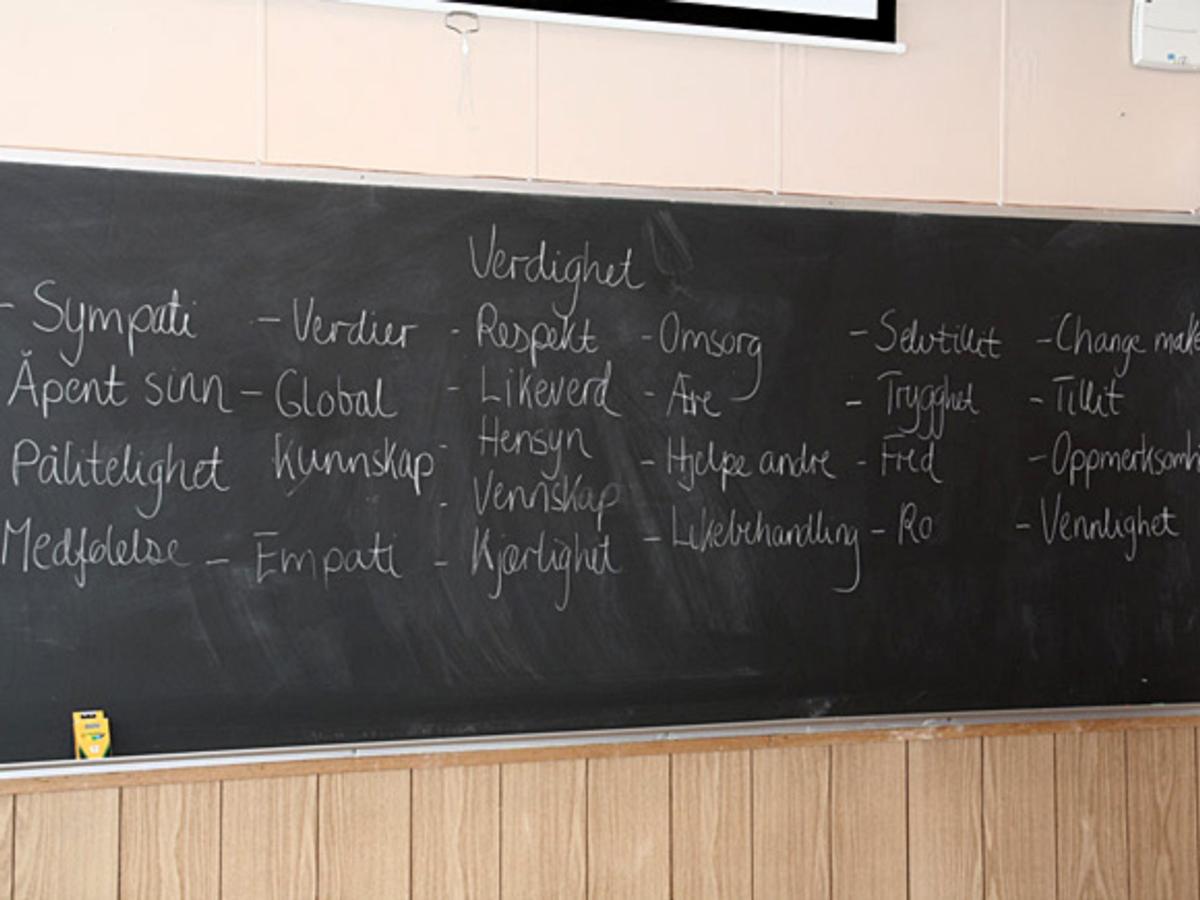 Verdighet
- Sympati
Åpent sinn
Pålitelighet
Medfølelse
- Verdier
- Global
Kunnskap
- Empati
- Respekt
- Likeverd
- Hensyn
- Vennskap
- Kjærlighet
- Omsorg
- Ære
- Hjelpe andre
- Likebehandling
- Selvtillit
- Trygghet
- Fred
- Ro
- Change make
- Tillit
- Oppmerksomh
- Vennlighet